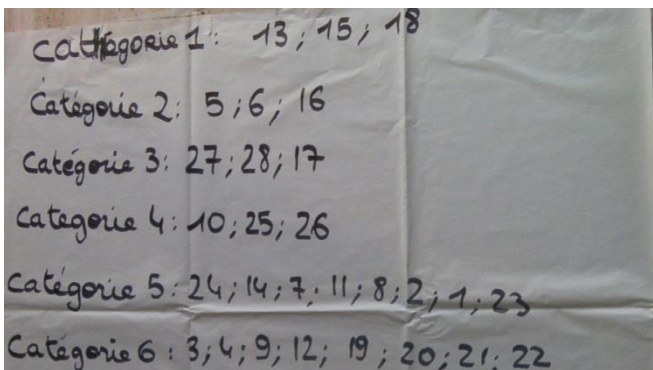 Cathégorie 1: 13; 15; 18
Catégorie 2: 5; 6; 16
Catégorie 3: 27; 28; 17
Categorie 4: 10; 25; 26
Catégorie 5: 24; 14; 7; 11; 8; 2; 1; 23
Catégorie 6: 3; 4; 9; 12; 19; 20; 21; 22